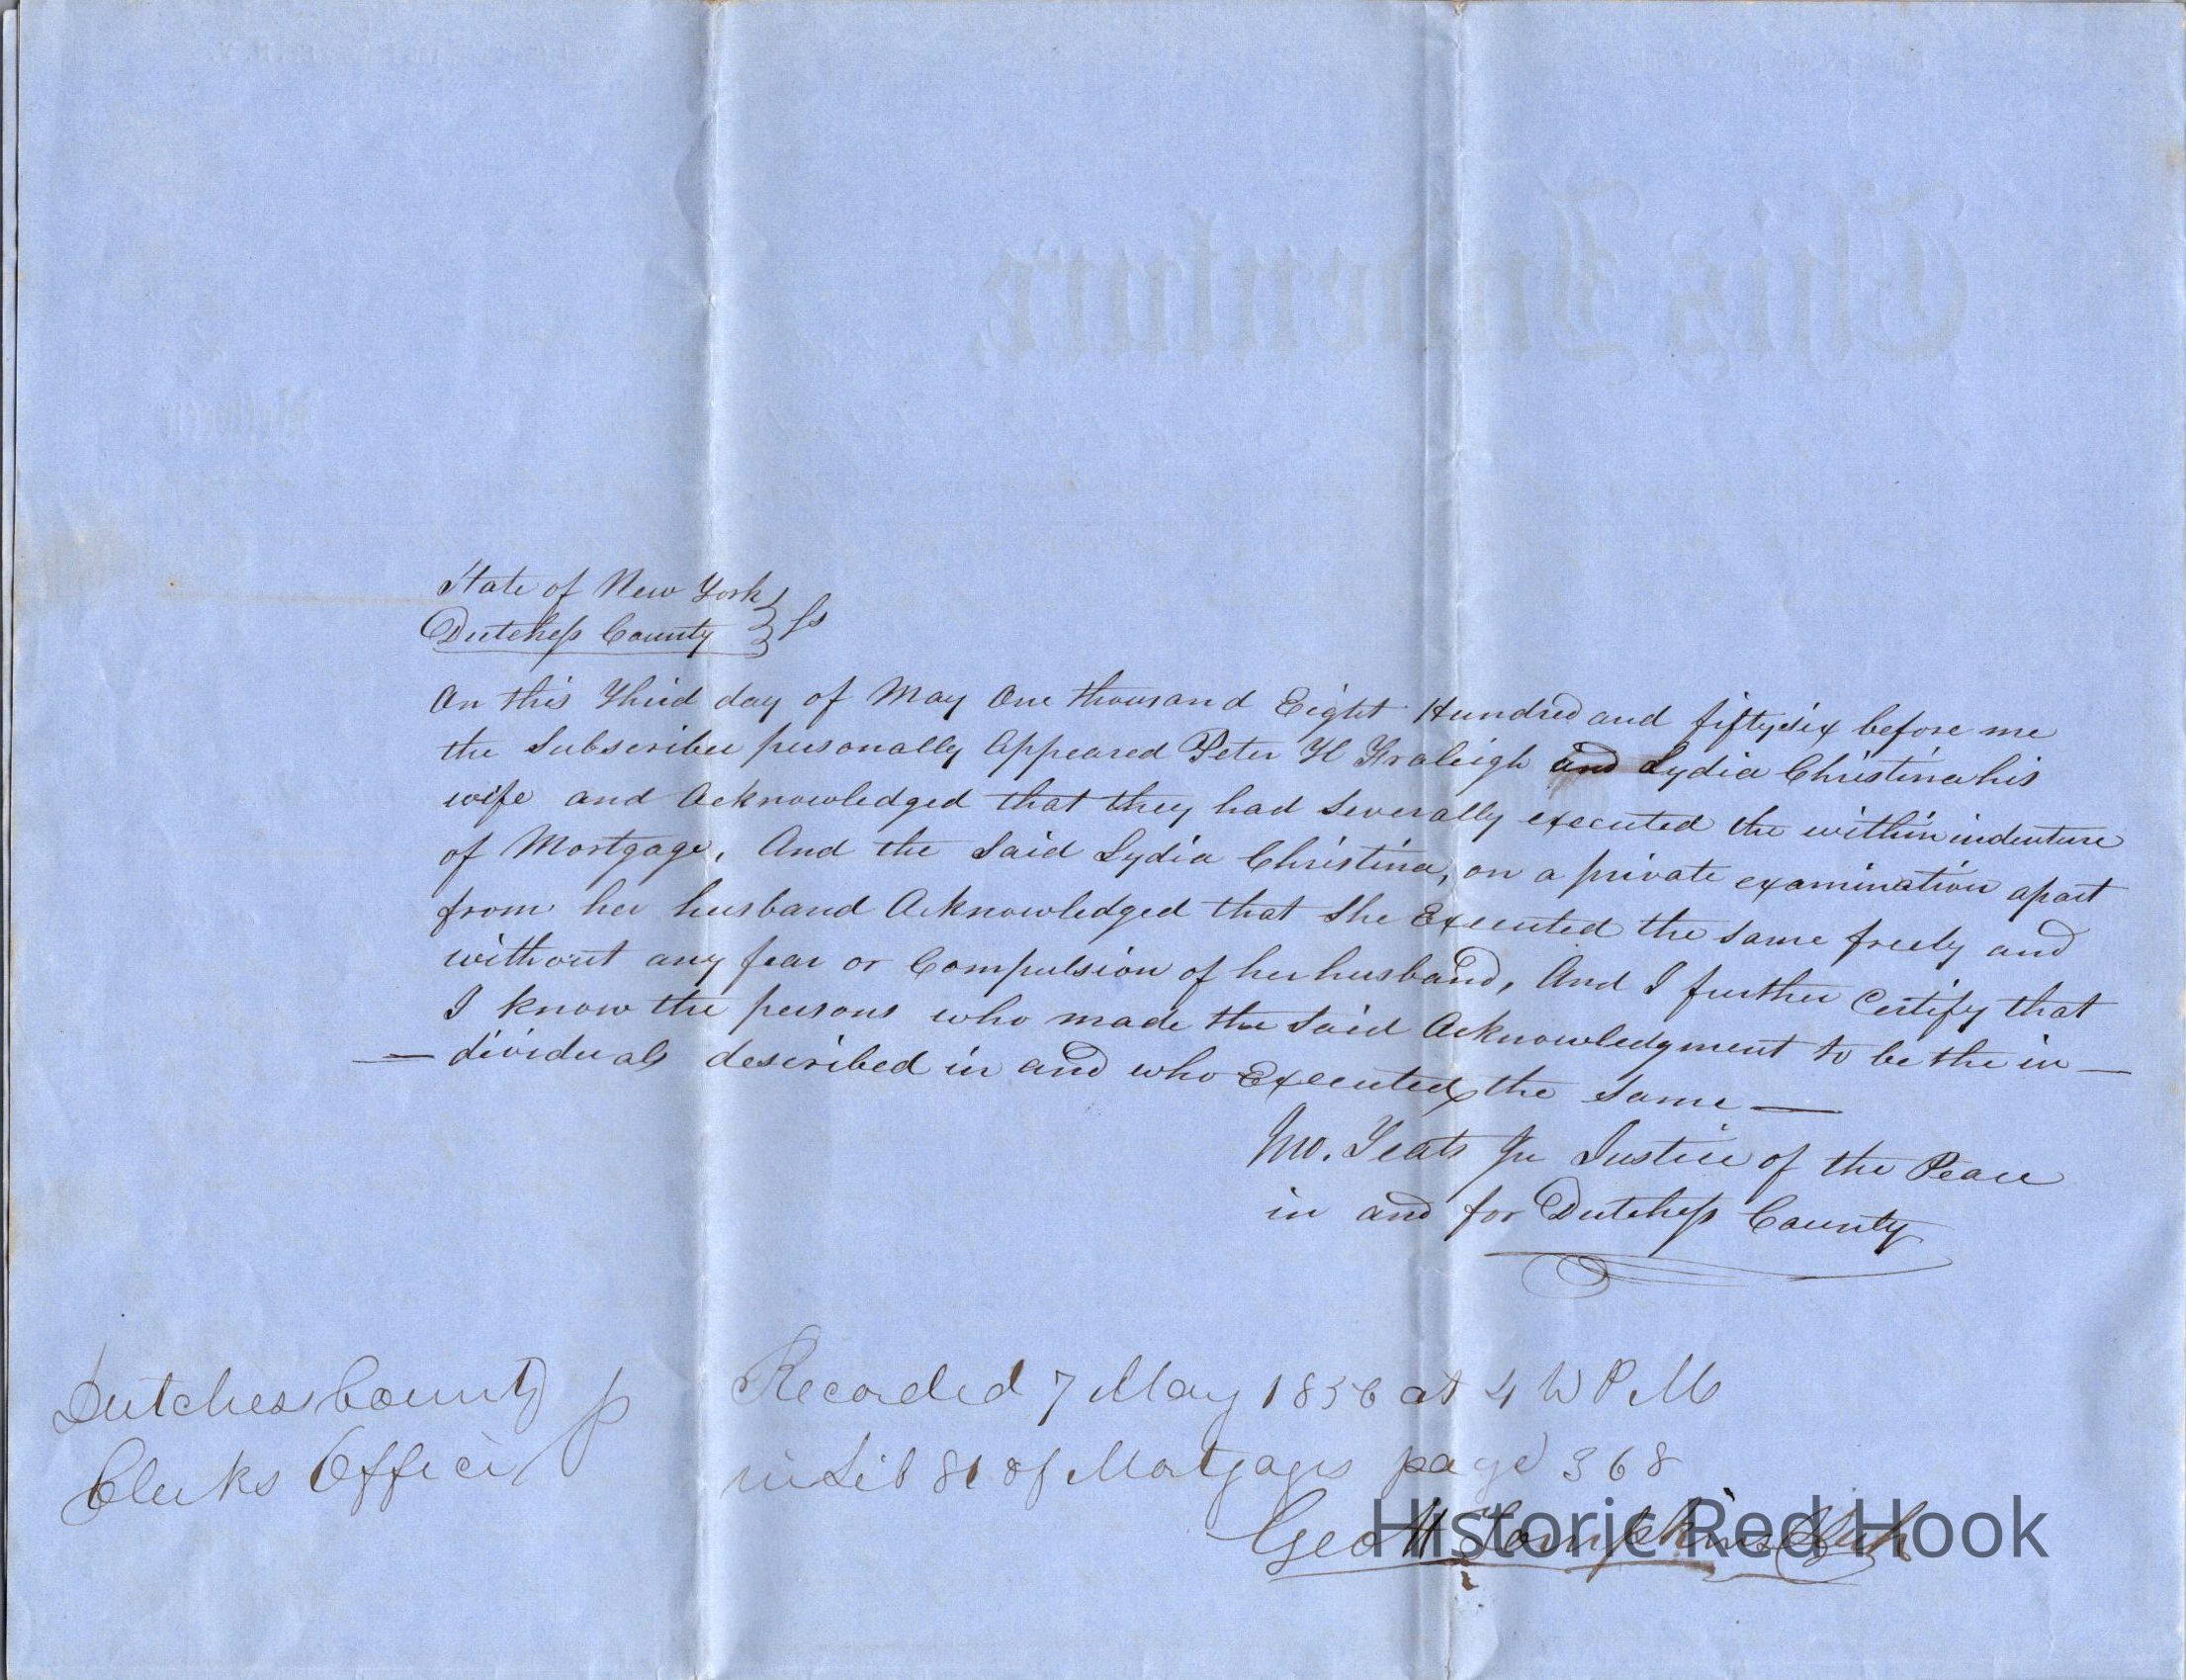 State of New York
Dutchess County } ss
On this Third day of May One thousand Eight Hundred and fiftysix before me
the Subscriber personally Appeared Peter H Fraleigh and Lydia Christina his
wife and Acknowledged that they had Severally executed the within indenture
of Mortgage, And the Said Lydia Christina, on a private examination apart
from her husband Acknowledged that She Executed the Same freely and
without any fear or Compulsion of her husband, And I further Certify that
I know the persons who made the Said Acknowledgment to be the in—
—dividuals described in and who Executed the Same—
Jno. Teats Jr Justice of the Peace
in and for Dutchess County
Dutchess County
Clerks Office
Recorded 7 May 1856 at 4 PM
in Lib 81 of Mortgages page 368
Geo H Tompkins Clerk
Historic Red Hook
This Indenture,
Between